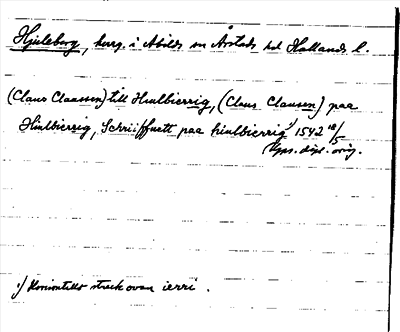 Hjuleberg, herrg. i Abilds sn Årstads hd Hallands l.
(Claus Claussen) till Hiulbierrig, (Claus Clausen) paa
Hiulbierrig, Schriiffuett paa hiulbierrig¹⁾ 1542 18/5
Kps. dipl. orig.
¹⁾ Horisontellt streck ovan ierri.